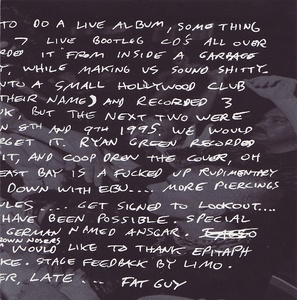 TO DO A LIVE ALBUM, SOMETHING
7 LIVE BOOTLEG CD'S ALL OVER
RDED IT FROM INSIDE A GARBAGE
T, WHILE MAKING US SOUND SHITTY.
NTO A SMALL HOLLYWOOD CLUB
THEIR NAME) AND RECORDED 3
UK, BUT THE NEXT TWO WERE
N 8TH AND 9TH 1995. WE WOULD
RGET IT. RYAN GREEN RECORDED
IT, AND COOP DREW THE COVER, OH
EAST BAY IS A FUCKED UP RUDIMENTARY
DOWN WITH EBU.... MORE PIERCINGS
ULES .... GET SIGNED TO LOOKOUT....
HAVE BEEN POSSIBLE. SPECIAL
GERMAN NAMED ANSGAR.
ROWN NOSERS
WOULD LIKE TO THANK EPITAPH
KE. STAGE FEEDBACK BY LIMO.
ER, LATE ... FAT GUY